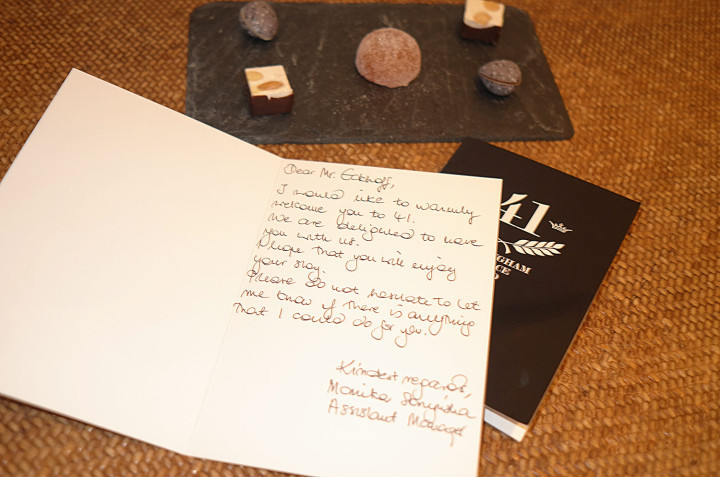 Dear Mr. Eckhoff,
I would like to warmly
welcome you to 41.
We are delighted to have
you with us.
I hope that you will enjoy
your stay.
Please do not hesitate to let
me know if there is anything
that I could do for you.
Kindest regards,
Monika
Assistant Manager
41
GHAM
CE